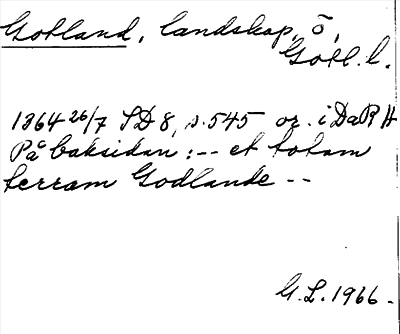 Gotland, landskap, ö,
Gotl. l.
1364 26/7 SD 8, s. 545 or. i DaRA
På baksidan: -- et totam
terram Godlande --
G.L. 1966.